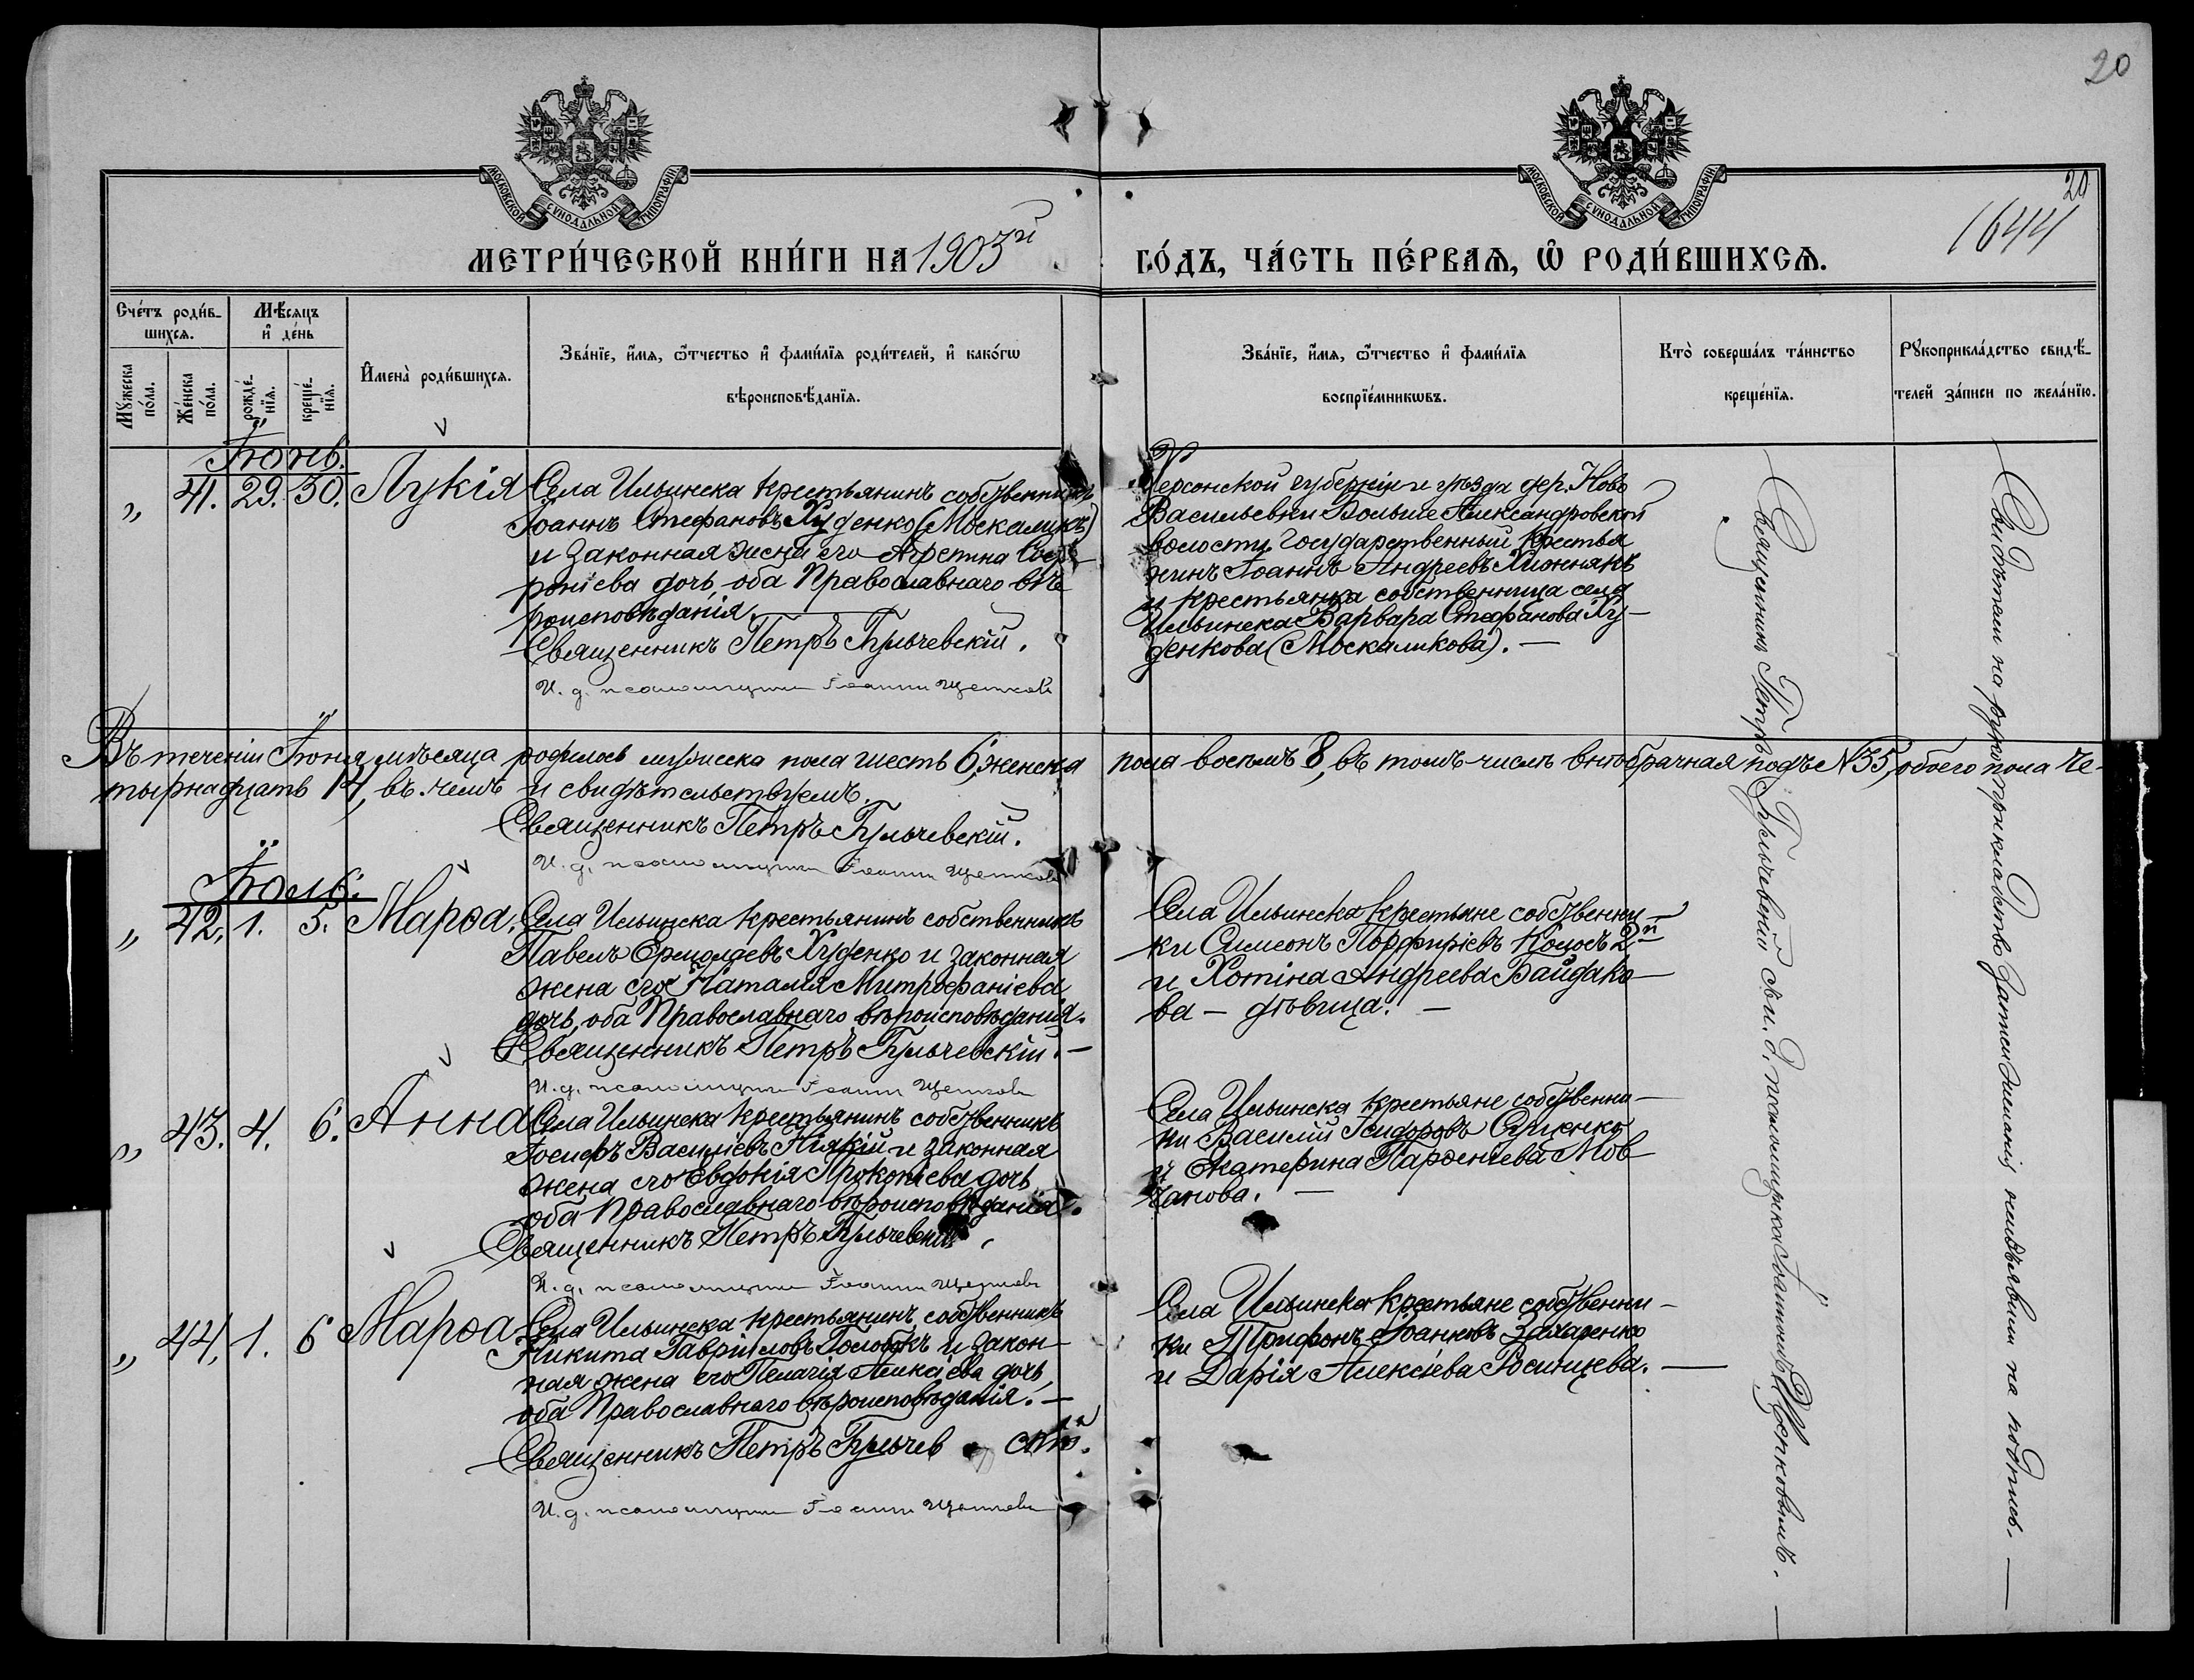 20
20
1644
МОСКОВСКОЙ СѴНОДАЛЬНОЙ ТИПОГРАФІИ
МОСКОВСКОЙ СѴНОДАЛЬНОЙ ТИПОГРАФІИ
МЕТРИ́ЧЕСКОЙ КНИ́ГИ НА 1903й
ГО́ДЪ, ЧА́СТЬ ПЕ́РВАѦ, Ѡ҆ РОДИ́ВШИХСѦ.
Сче́тъ роди́в-
шихсѧ.
Мѣ́сѧцъ
и҆ де́нь
Мꙋ́жеска
по́ла.
Же́нска
по́ла.
рожде́-
нїѧ.
креще́-
нїѧ.
И҆мена̀ роди́вшихсѧ.
Зва́нїе, и҆́мѧ, ѻ҆́тчество и҆ фами́лїѧ роди́телей, и҆ како́гѡ
вѣроисповѣ́данїѧ.
Зва́нїе, и҆́мѧ, ѻ҆́тчество и҆ фами́лїѧ
воспрїе́мникѡвъ.
Кто̀ соверша́лъ та́инство
креще́нїѧ.
Рꙋкоприкла́дство свидѣ́-
телей за́писи по жела́нїю.
Іюнь.
„ 41. 29. 30. Лукія
Села Ильинска крестьянинъ собственникъ
Іоаннъ Стефановъ Худенко (Москаликъ)
и законная жена его Агрепина Соф-
роніева дочь, оба Православнаго вѣ-
роисповѣданія.
Священникъ Петръ Бульчевскій.
И. д. псаломщика Іоаннъ Щетковъ
Херсонской губерніи и уѣзда дер. Ново
Васильевки Больше Александровской
волости Государственный крестья
нинъ Іоаннъ Андреевъ Хижнякъ
и крестьянка собственница села
Ильинска Варвара Стефанова Ху-
денкова (Москаликова). —
Въ теченіи Іюня мѣсяца родилось мужеска пола шесть 6, женска пола восемъ 8, въ томъ числѣ внѣбрачная подъ N 35, обоего пола че-
тырнадцать 14, въ чемъ и свидѣтельствуемъ.
Священникъ Петръ Бульчевскій.
И. д. псаломщика Іоаннъ Щетковъ
Іюль.
„ 42. 1. 5. Марѳа.
Села Ильинска крестьянинъ собственникъ
Павелъ Ермолаевъ Худенко и законная
жена его Наталія Митрофаніева
дочь, оба Православнаго вѣроисповѣданія.
Священникъ Петръ Бульчевскій. —
И. д. псаломщика Іоаннъ Щетковъ
Села Ильинска крестьяне собственни-
ки Симеонъ Порфиріевъ Колосъ 2й
и Хотіна Андреева Байдако-
ва — дѣвица. —
„ 43. 4. 6. Анна
Села Ильинска крестьянинъ собственникъ
Іосифъ Василіевъ Ніякій и законная
жена его Евдокія Прокопіева дочь,
оба Православнаго вѣроисповѣданія.
Священникъ Петръ Бульчевскій.
И. д. псаломщика Іоаннъ Щетковъ
Села Ильинска крестьяне собственни-
ки Василій Ісидоровъ Сущенко
и Екатерина Парѳеніева Мов-
чанова. —
„ 44. 1. 6 Марѳа
Села Ильинска крестьянинъ собственникъ
Никита Гавріиловъ и закон-
ная жена его Пелагія Алексіева дочь,
оба Православнаго вѣроисповѣданія. —
Священникъ Петръ Бульчевскій.
И. д. псаломщика Іоаннъ Щетковъ
Села Ильинска крестьяне собственни-
ки Трифонъ Іоанновъ Захаренко
и Дарія Алексіева Росницева. —
Священникъ Петръ Бульчевскій съ и. д. псаломщика Іоанномъ Щетковымъ. —
Свидѣтели на рукоприкладство желанія неизъявили на подпись. —